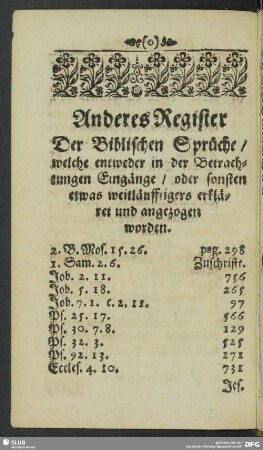 (o)
Anderes Register
Der Biblischen Sprüche /
welche entweder in der Betrach-
tungen Eingänge / oder sonsten
etwas weitläufftigers erklä-
ret und angezogen
worden.
2. B. Mos. 15. 26. pag. 298
1. Sam. 2. 6. Zuschrifft.
Job. 2. 11. 756
Job. 5. 18. 265
Job. 7. 1. c. 2. 11. 97
Ps. 25. 17. 566
Ps. 30. 7. 8. 129
Ps. 32. 3. 525
Ps. 92. 13. 171
Eccles. 4. 10. 731
Jes.
SLUB